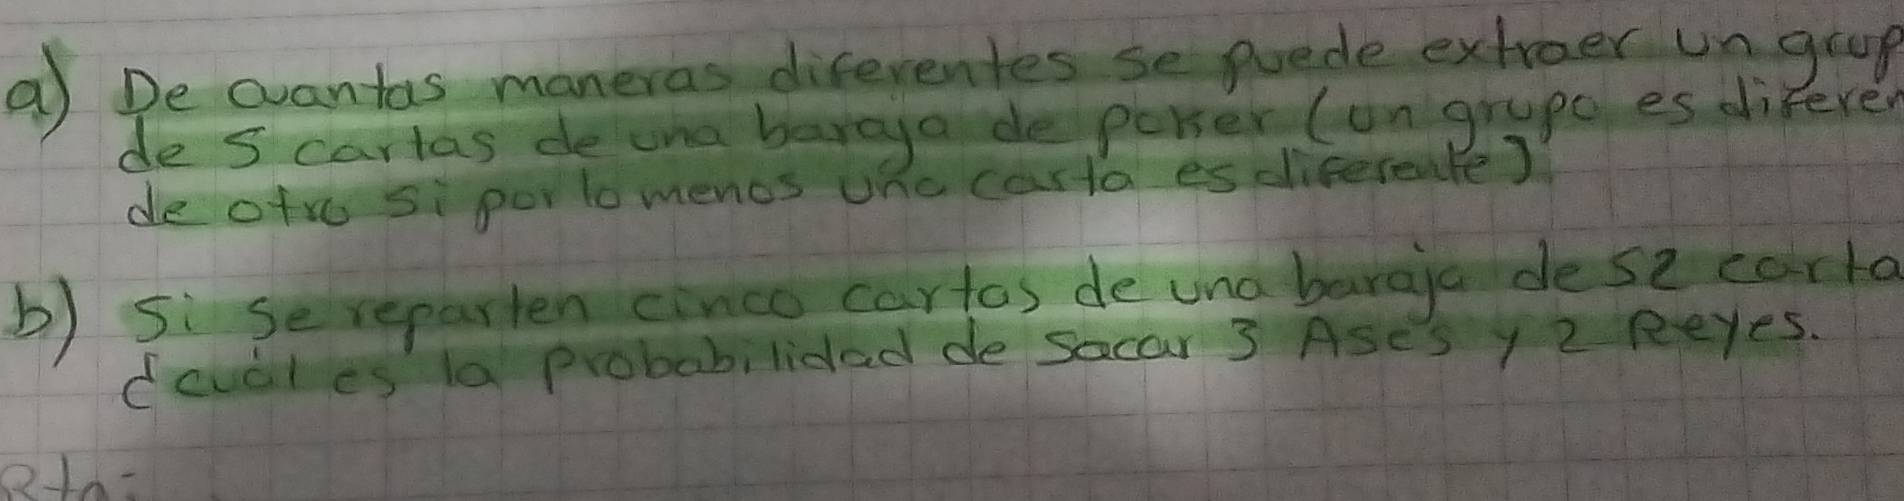 a) De cuantas maneras diferentes se puede extraer un grup
de 5 cartas de una baraja de poker (un grupo es diferen
de otro si por lo menos una carta es diferente)
b) Si se reparten cinco cartas de una baraja de 52 carta
¿cuál es la probabilidad de sacar 3 Ases y 2 Reyes.
Rta: